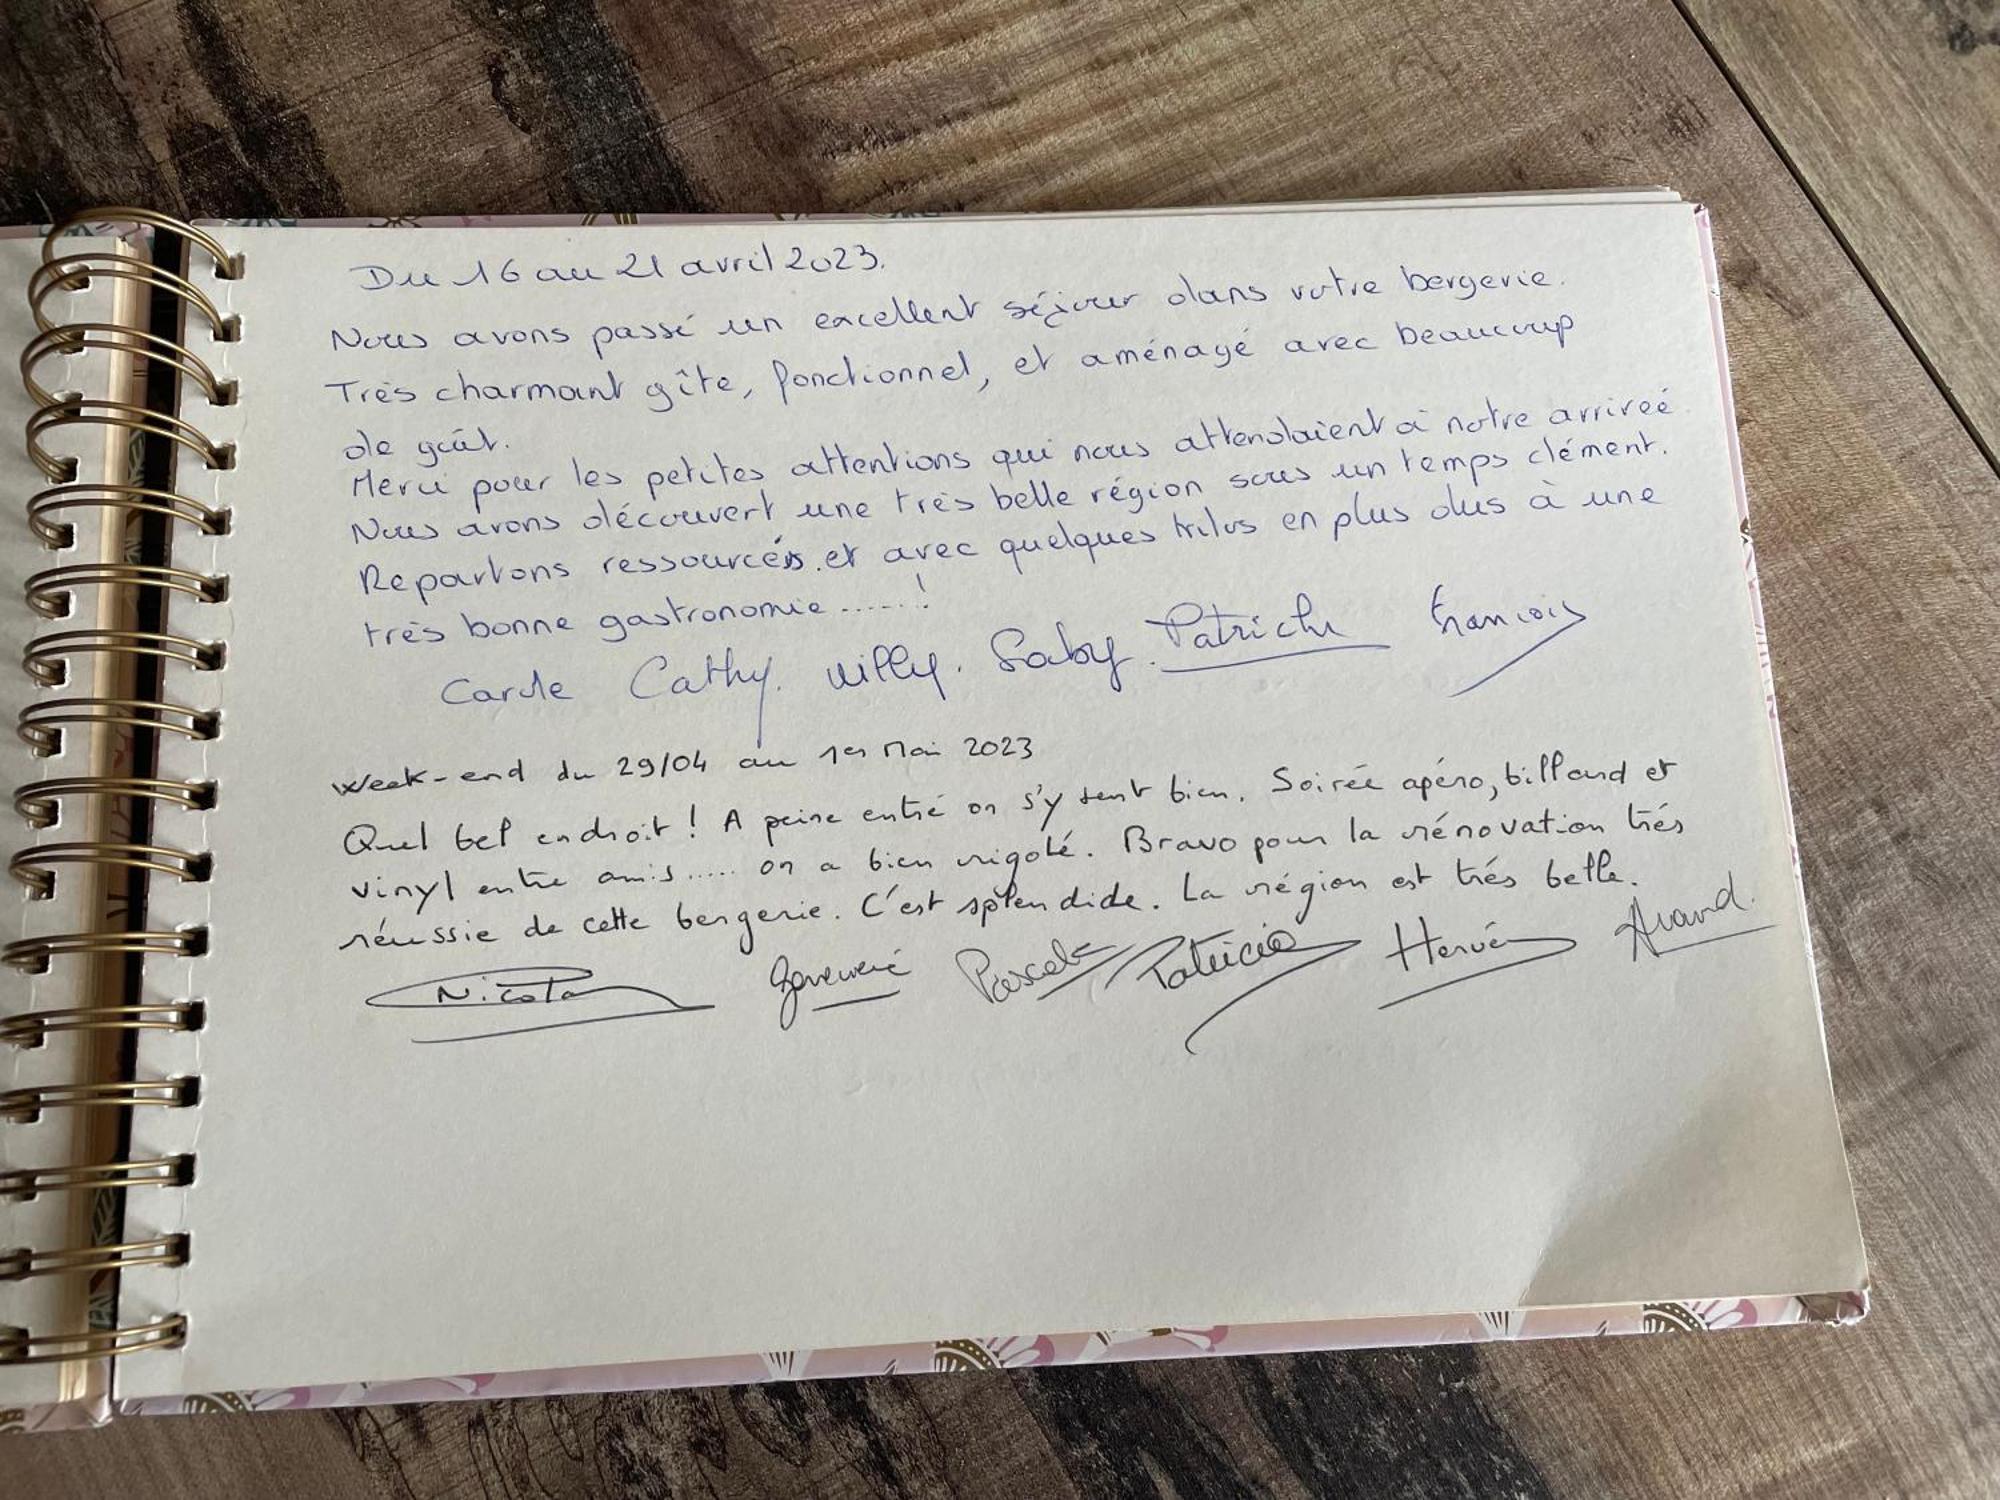 Du 16 au 21 avril 2023.
Nous avons passé un excellent séjour dans votre bergerie.
Très charmant gîte, fonctionnel, et aménagé avec beaucoup
de goût.
Merci pour les petites attentions qui nous attendaient à notre arriveé
Nous avons découvert une très belle région sous un temps clément.
Repartons ressourcés et avec quelques kilos en plus dus à une
très bonne gastronomie ......!
Carole Cathy. Willy. Gaby. Patrick François
Week-end du 29/04 au 1er Mai 2023
Quel bel endroit ! A peine entré on s'y sent bien. Soirée apéro, billard et
vinyl entre amis ..... on a bien rigolé. Bravo pour la rénovation trés
réussie de cette bergerie. C'est splendide. La région est trés belle.
Nicolas Pascale Patricia Hervé